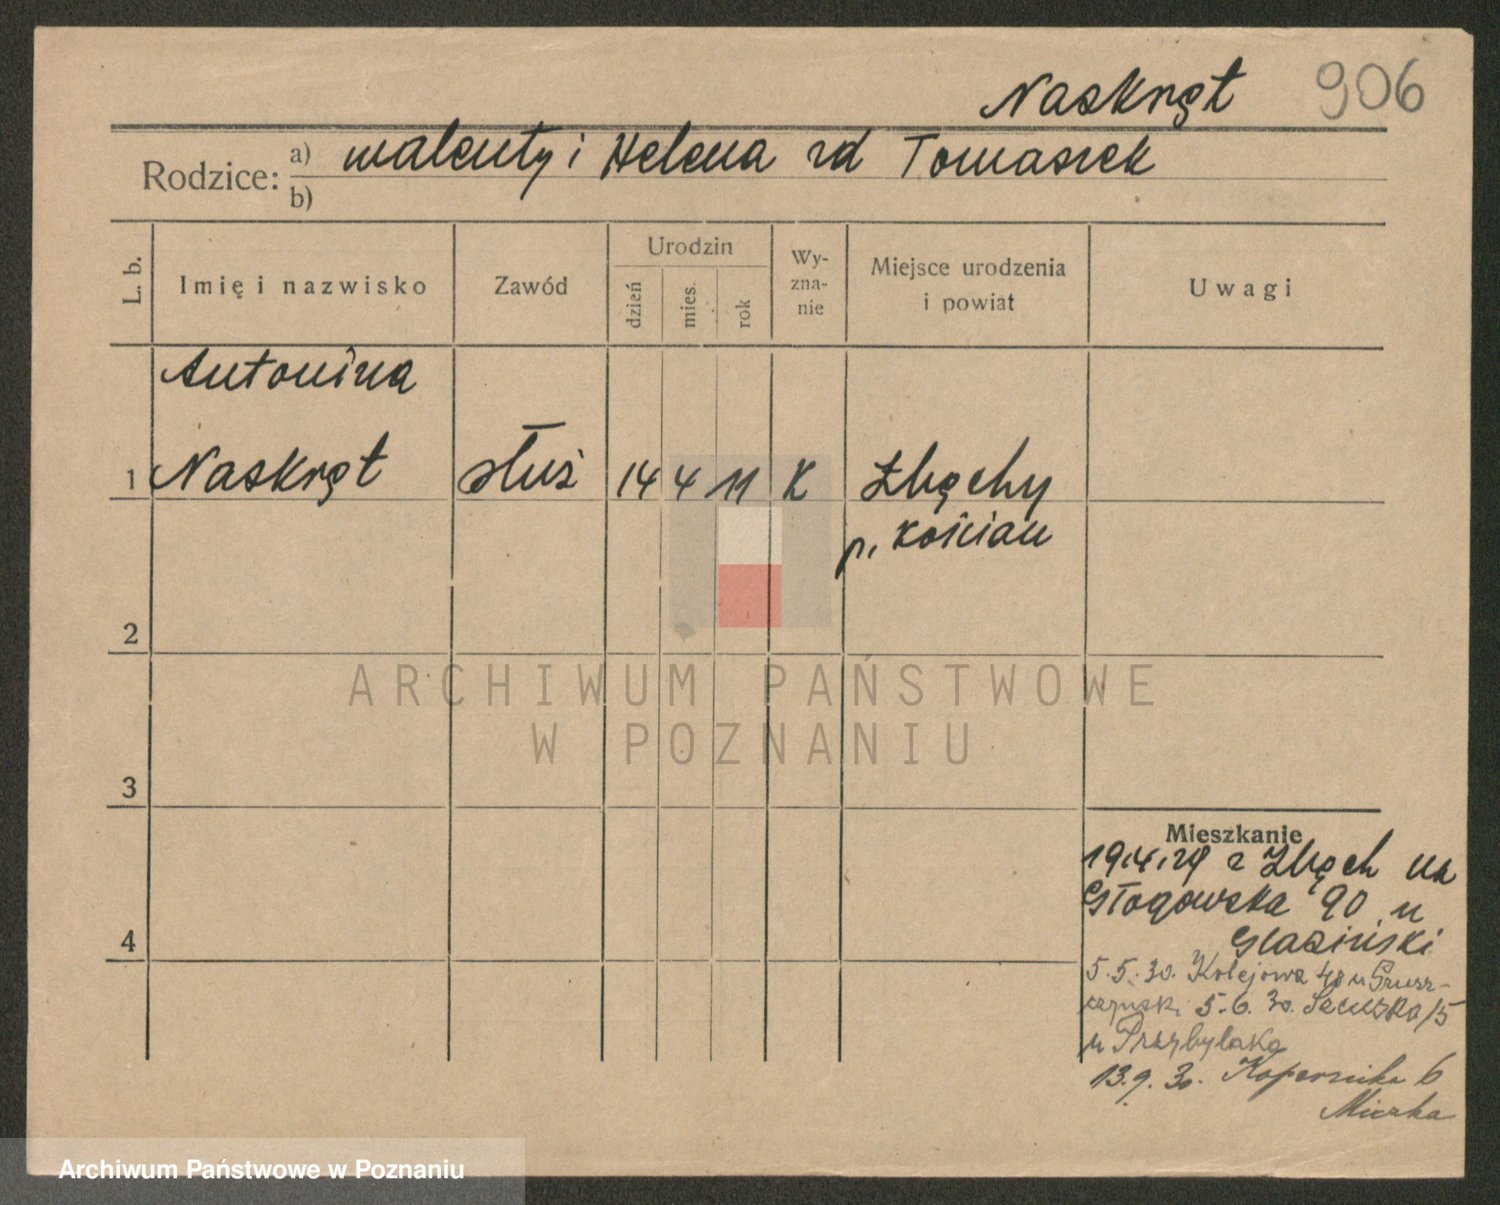 Naskręt 906
Rodzice: a) Walenty i Helena zd Tomaszek
b)
L. b. Imię i nazwisko Zawód Urodzin dzień mies. rok Wy-zna-nie Miejsce urodzenia i powiat Uwagi
Antonina
1 Naskręt służ 14 4 11 K Zbęchy
p. Kościan
2
ARCHIWUM PAŃSTWOWE
W POZNANIU
3
Mieszkanie
z Zbęch na
Głogowska 90 u
4
5.5.30. Kolejowa 48 u
5.6.30.
u Przybylaka
13.9.30. Kopernika 6
Archiwum Państwowe w Poznaniu